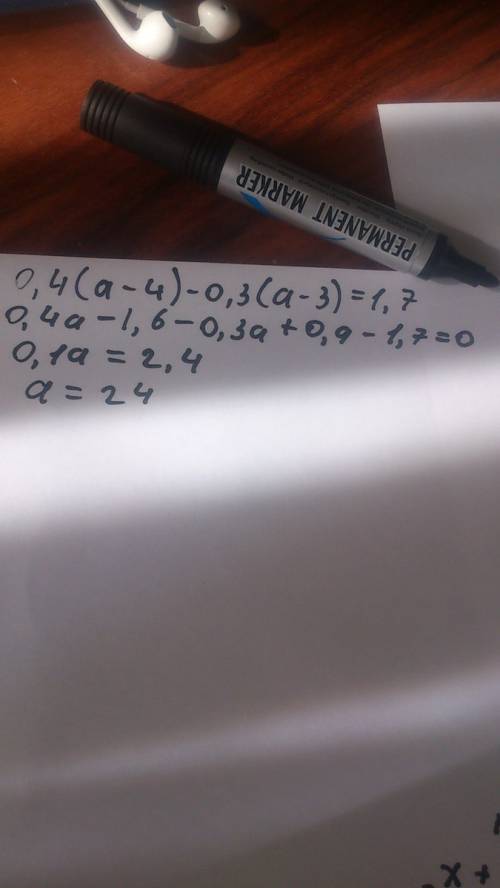 PERMANENT MARKER
0,4(a-4)-0,3(a-3)=1,7
0,4a-1,6-0,3a+0,9-1,7=0
0,1a=2,4
a=24
x+